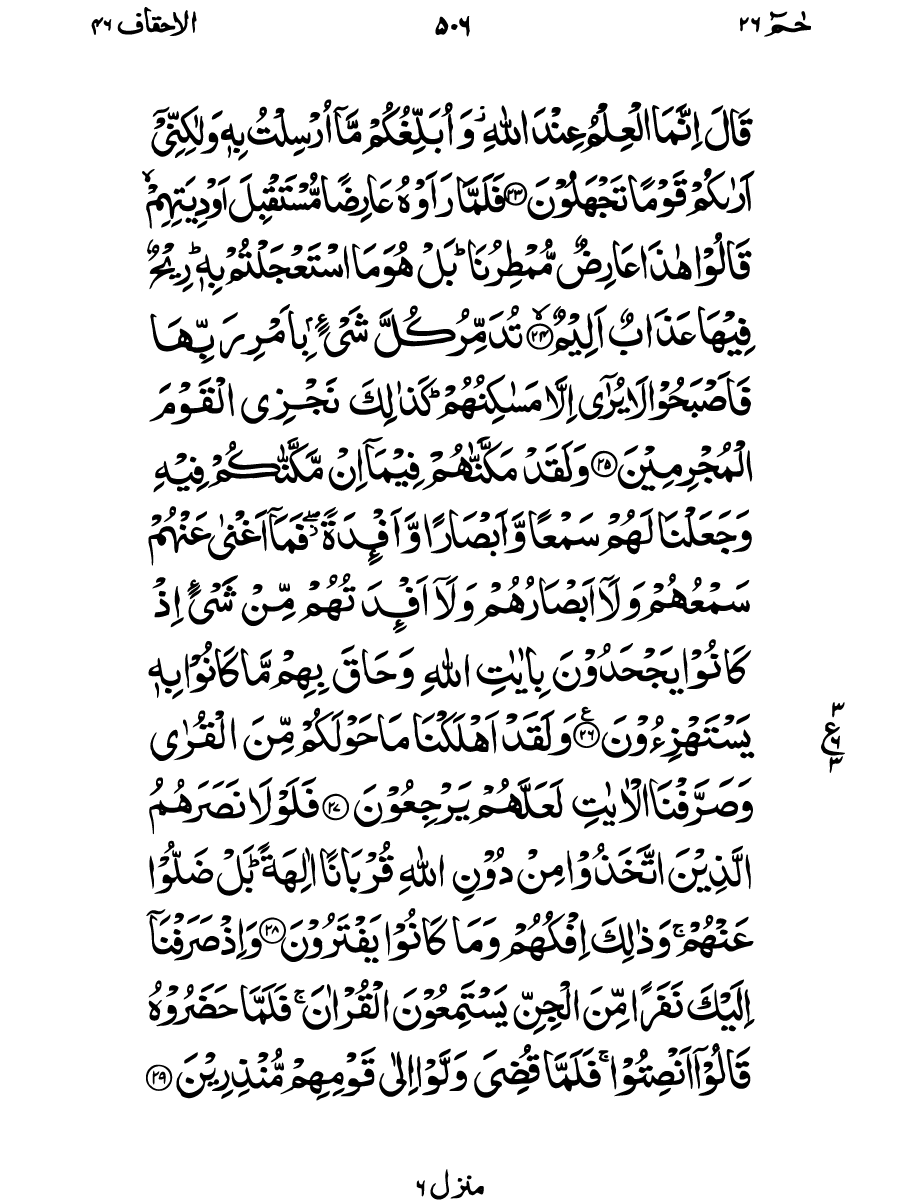 حٰمٓ ۲۶
۵۰۶
الاحقاف ۴۶
قَالَ اِنَّمَا الْعِلْمُ عِنْدَ اللّٰهِ ۖ٘ وَ اُبَلِّغُكُمْ مَّاۤ اُرْسِلْتُ بِهٖ وَلٰكِنِّیْۤ
اَرٰىكُمْ قَوْمًا تَجْهَلُوْنَ ﴿۲۳﴾ فَلَمَّا رَاَوْهُ عَارِضًا مُّسْتَقْبِلَ اَوْدِیَتِهِمْ ۙ
قَالُوْا هٰذَا عَارِضٌ مُّمْطِرُنَا ؕ بَلْ هُوَ مَا اسْتَعْجَلْتُمْ بِهٖ ؕ رِیْحٌ
فِیْهَا عَذَابٌ اَلِیْمٌ ﴿ۙ۲۴﴾ تُدَمِّرُ كُلَّ شَیْءٍۭ بِاَمْرِ رَبِّهَا
فَاَصْبَحُوْا لَا یُرٰۤی اِلَّا مَسٰكِنُهُمْ ؕ كَذٰلِكَ نَجْزِی الْقَوْمَ
الْمُجْرِمِیْنَ ﴿۲۵﴾ وَلَقَدْ مَكَّنّٰهُمْ فِیْمَاۤ اِنْ مَّكَّنّٰكُمْ فِیْهِ
وَجَعَلْنَا لَهُمْ سَمْعًا وَّاَبْصَارًا وَّاَفْـِٕدَةً ۖ٘ فَمَاۤ اَغْنٰی عَنْهُمْ
سَمْعُهُمْ وَلَاۤ اَبْصَارُهُمْ وَلَاۤ اَفْـِٕدَتُهُمْ مِّنْ شَیْءٍ اِذْ
كَانُوْا یَجْحَدُوْنَ بِاٰیٰتِ اللّٰهِ وَحَاقَ بِهِمْ مَّا كَانُوْا بِهٖ
یَسْتَهْزِءُوْنَ ﴿۲۶﴾ؑ وَلَقَدْ اَهْلَكْنَا مَا حَوْلَكُمْ مِّنَ الْقُرٰی
۳
ع
۶
۳
وَصَرَّفْنَا الْاٰیٰتِ لَعَلَّهُمْ یَرْجِعُوْنَ ﴿۲۷﴾ فَلَوْلَا نَصَرَهُمُ
الَّذِیْنَ اتَّخَذُوْا مِنْ دُوْنِ اللّٰهِ قُرْبَانًا اٰلِهَةً ؕ بَلْ ضَلُّوْا
عَنْهُمْ ۚ وَذٰلِكَ اِفْكُهُمْ وَمَا كَانُوْا یَفْتَرُوْنَ ﴿۲۸﴾ وَاِذْ صَرَفْنَاۤ
اِلَیْكَ نَفَرًا مِّنَ الْجِنِّ یَسْتَمِعُوْنَ الْقُرْاٰنَ ۚ فَلَمَّا حَضَرُوْهُ
قَالُوْۤا اَنْصِتُوْا ۚ فَلَمَّا قُضِیَ وَلَّوْا اِلٰی قَوْمِهِمْ مُّنْذِرِیْنَ ﴿۲۹﴾
منزل ۶